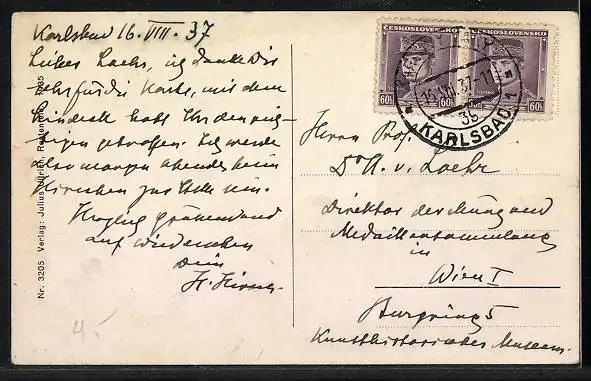 Karlsbad 16. VIII. 37
Lieber Loehr, ich danke Dir
sehr für die Karte, mit dem
habt Ihr den
getroffen. Ich werde
also morgen abends beim
Hirschen zur Stelle sein.
Herzlich grüssend und
auf Wiedersehen
Dein
H.
Nr. 3205 Verlag: Julius
ČESKOSLOVENSKO
ČESKOSLOVENSKO
60h 60h
60h 60h
KARLOVY VARY 1
16.VIII.37-11
3b
KARLSBAD 1
Herrn Prof.
Dr A. v. Loehr
Direktor der Münz und
Medaillensammlung
in
Wien I
Burgring 5
Kunsthistorisches Museum.
4.-